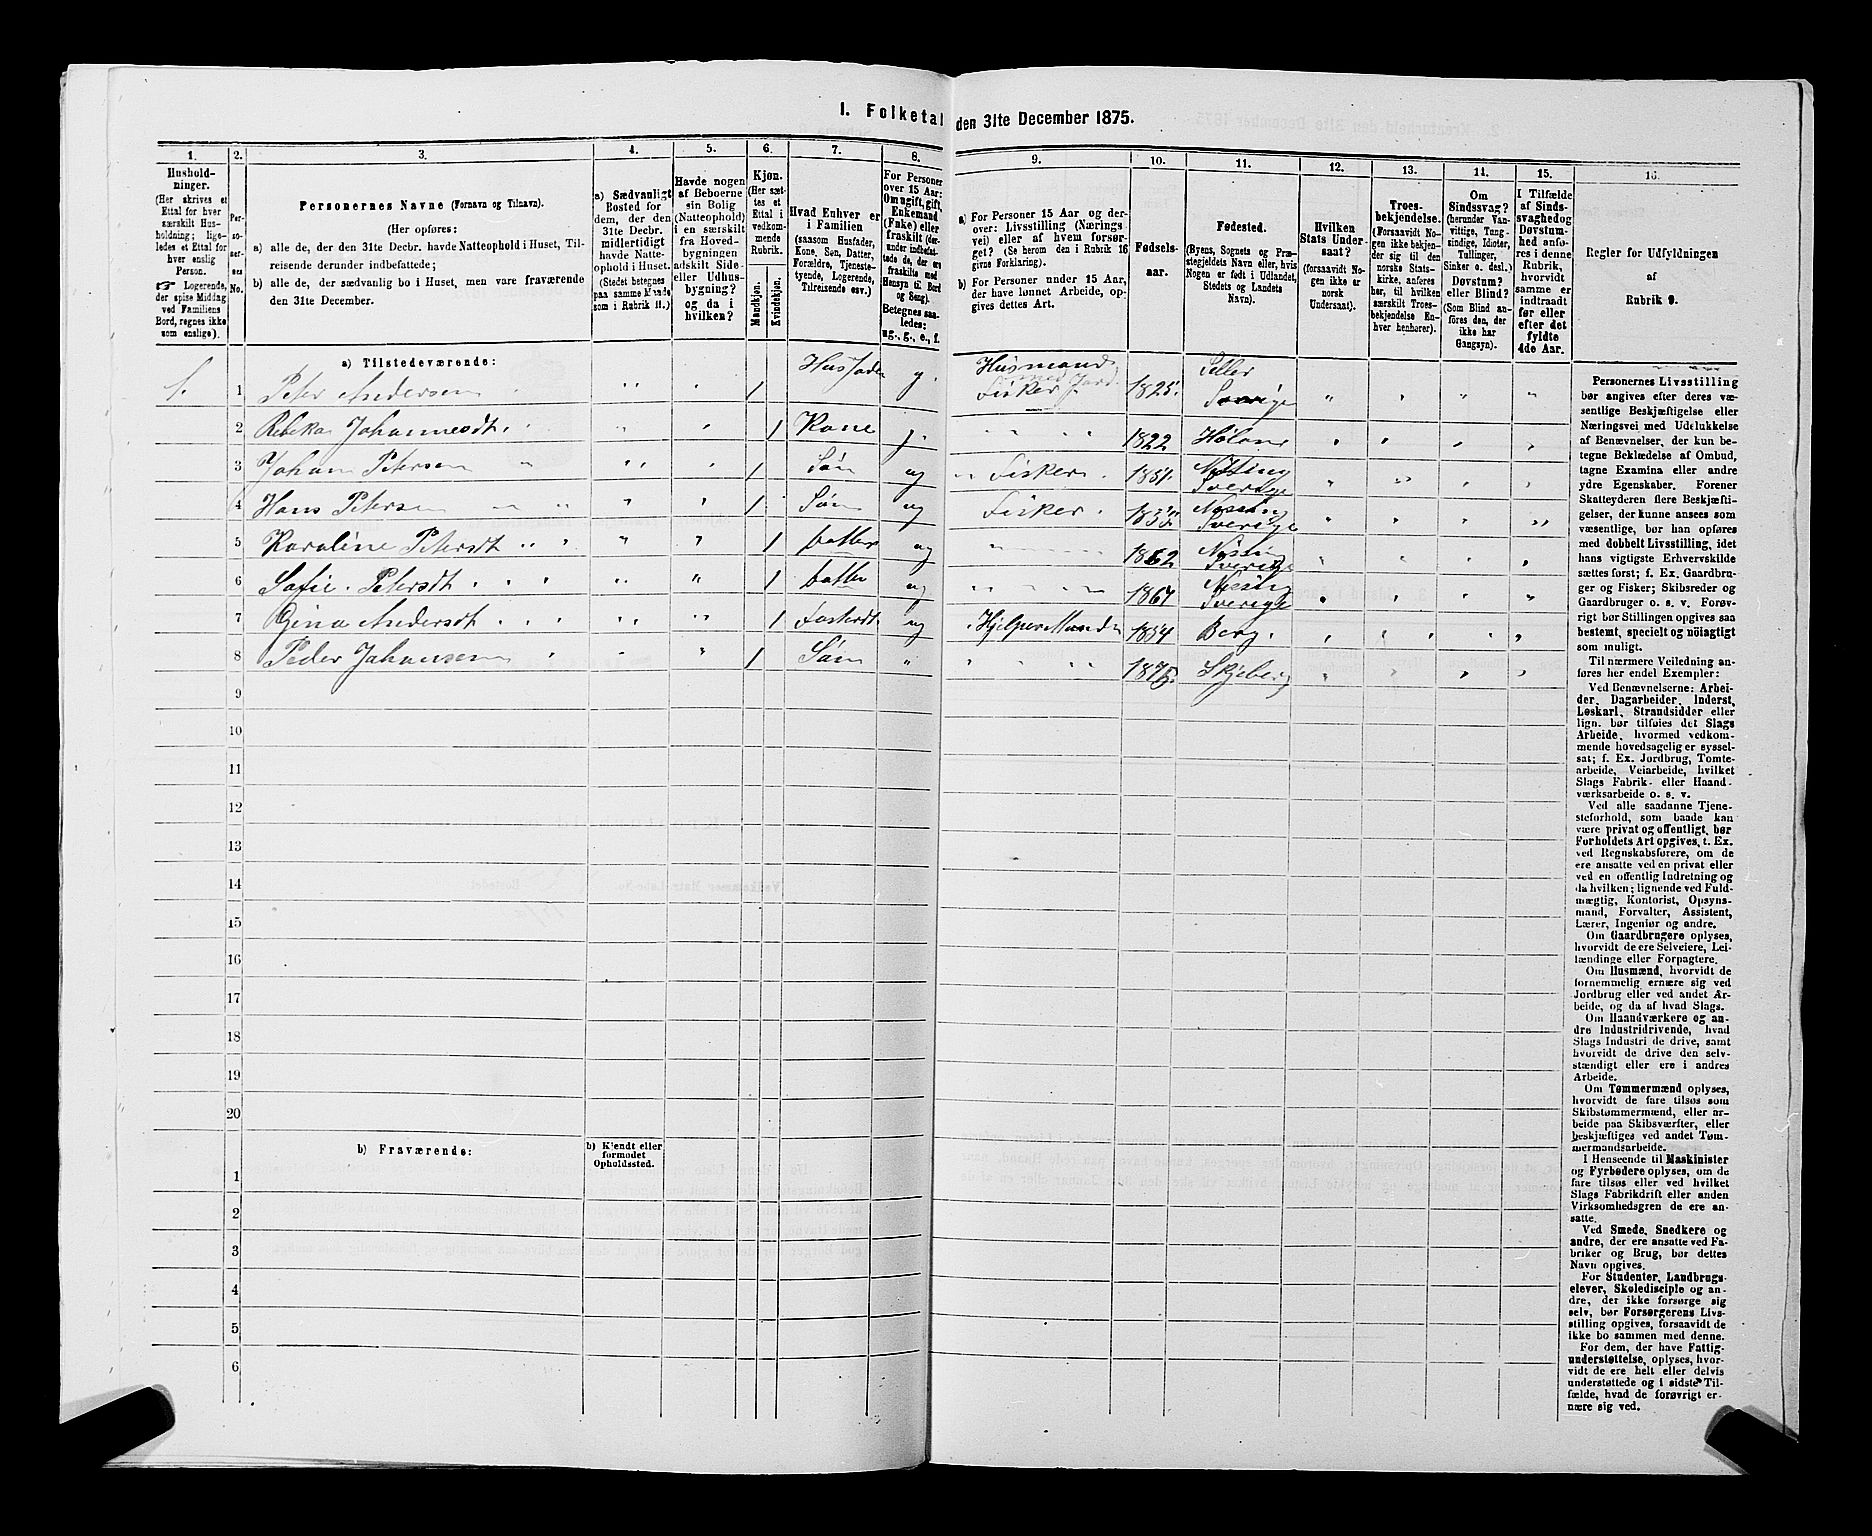 I. Folketal den 31te December 1875.
1.
Hushold-
ninger.
(Her skrives et
Ettal for hver
særskilt Hus-
holdning; lige-
ledes et Ettal for
hver enslig
Person.
☞ Logerende,
der spise Middag
ved Familiens
Bord, regnes ikke
som enslige).
2.
Per-
so-
ner-
nes
No.
3.
Personernes Navne (Fornavn og Tilnavn).
(Her opføres:
a) alle de, der den 31te Decbr. havde Natteophold i Huset, Til-
reisende derunder indbefattede;
b) alle de, der sædvanlig bo i Huset, men vare fraværende
den 31te December.
4.
a) Sædvanligt
Bosted for
dem, der den
31te Decbr.
midlertidigt
havde Natte-
ophold i Huset.
(Stedet betegnes
paa samme Maade
som i Rubrik 11.)
5.
Havde nogen
af Beboerne
sin Bolig
(Natteophold)
i en særskilt
fra Hoved-
bygningen
adskilt Side-
eller Udhus-
bygning?
og da i
hvilken?
6.
Kjøn.
(Her sæt-
tes et
Ettal i
vedkom-
mende
Rubrik.
Mandkjøn.
Kvindekjøn.
7.
Hvad Enhver er
i Familien
(saasom Husfader,
Kone, Søn, Datter,
Forældre, Tjeneste-
tyende, Logerende,
Tilreisende osv.)
8.
For Personer
over 15 Aar:
Om ugift, gift,
Enkemand
(Enke) eller
fraskilt (der-
under indbefat-
tede de, der ere
fraskilte med
Hensyn til Bord
og Seng).
Betegnes saa-
ledes:
ug., g., e., f.
9.
a) For Personer 15 Aar og der-
over: Livsstilling (Nærings-
vei) eller af hvem forsør-
get? (Se herom den i Rubrik 16
givne Forklaring).
b) For Personer under 15 Aar,
der have lønnet Arbeide, op-
gives dettes Art.
10.
Fødsels-
aar.
11.
Fødested.
(Byens, Sognets og Præ-
stegjeldets Navn eller, hvis
Nogen er født i Udlandet,
Stedets og Landets
Navn).
12.
Hvilken
Stats Under-
saat?
(forsaavidt No-
gen ikke er
norsk
Undersaat).
13.
Troes-
bekjendelse.
(Forsaavidt No-
gen ikke bekjen-
der sig til den
norske Stats-
kirke, anføres
her, til hvilken
særskilt Troes-
bekjendelse En-
hver henhører).
14.
Om
Sindssvag?
(herunder Van-
vittige, Tung-
sindige, Idioter,
Tullinger,
Sinker o. desl.)
Døvstum?
eller Blind?
(Som Blind an-
føres den, der
ikke har
Gangsyn).
15.
I Tilfælde
af Sinds-
svaghed og
Døvstum-
hed anfø-
res i denne
Rubrik,
hvorvidt
samme er
indtraadt
før eller
efter det
fyldte
4de Aar.
16.
Regler for Udfyldningen
af
Rubrik 9.
a) Tilstedeværende:
1. 1 Peter Andersen " " 1 Husfader g. Husmand med Jord Fisker 1825. Sverige " " " "
2 Rebeka Johannesdt. " " 1 Kone g. " " " 1822 " " " "
3 Johan Petersen " " " 1 Søn ug " Fisker. 1851. Sverige " " " "
4 Hans Petersen " " " 1 Søn ug Fisker. Sverige " " " "
5 Karoline Petersdt " " " " 1 Datter ug " " " 1862 Sverige " " " "
6 Sofie Petersdt " " " " " 1 Datter ug " " " 1867 Sverige " " " "
7 Gina Andersdt " " " " " 1 ug 1854 Berg. " " " "
8 Peder Johansen " " " 1 Søn " " " " " 1875. Skjeberg " " " "
9
10
11
12
13
14
15
16
17
18
19
20
b) Fraværende:
b) Kjendt eller
formodet
Opholdssted.
1
2
3
4
5
6
Personernes Livsstilling
bør angives efter deres væ-
sentlige Beskjæftigelse eller
Næringsvei med Udelukkelse
af Benævnelser, der kun be-
tegne Beklædelse af Ombud,
tagne Examina eller andre
ydre Egenskaber. Forener
Skatteyderen flere Beskjæfti-
gelser, der kunne ansees som
væsentlige, bør han opføres
med dobbelt Livsstilling, idet
hans vigtigste Erhvervskilde
sættes først; f. Ex. Gaardbru-
ger og Fisker; Skibsreder og
Gaardbruger o. s. v. Forøv-
rigt bør Stillingen opgives saa
bestemt, specielt og nøiagtigt
som muligt.
Til nærmere Veiledning an-
føres her endel Exempler:
Ved Benævnelserne: Arbei-
der, Dagarbeider, Inderst,
Løskarl, Strandsidder eller
lign. bør tilføies det Slags
Arbeide, hvormed vedkom-
mende hovedsagelig er syssel-
sat; f. Ex. Jordbrug, Tomte-
arbeide, Veiarbeide, hvilket
Slags Fabrik- eller Haand-
værksarbeide o. s. v.
Ved alle saadanne Tjene-
steforhold, som baade kan
være privat og offentligt, bør
Forholdets Art opgives, t. Ex.
ved Regnskabsførere, om de
ere ansatte ved en privat eller
ved en offentlig Indretning og
da hvilken; lignende ved Fuld-
mægtig, Kontorist, Opsyns-
mand, Forvalter, Assistent,
Lærer, Ingeniør og andre.
Om Gaardbrugere oplyses,
hvorvidt de ere Selveiere, Lei-
lændinge eller Forpagtere.
Om Husmænd, hvorvidt de
fornemmelig ernære sig ved
Jordbrug eller ved andet Ar-
beide, og da af hvad Slags.
Om Haandværkere og an-
dre Industridrivende, hvad
Slags Industri de drive, samt
hvorvidt de drive den selv-
stændigt eller ere i andres
Arbeide.
Om Tømmermænd oplyses,
hvorvidt de fare tilsøs som
Skibstømmermænd, eller ar-
beide paa Skibsværfter, eller
beskjæftiges ved andet Tøm-
mermandsarbeide.
I Henseende til Maskinister
og Fyrbødere oplyses, om de
fare tilsøs eller ved hvilket
Slags Fabrikdrift eller anden
Virksomhedsgren de ere an-
satte.
Ved Smede, Snedkere og
andre, der ere ansatte ved Fa-
briker og Brug, bør dettes
Navn opgives.
For Studenter, Landbrugs-
elever, Skoledisciple og an-
dre, der ikke forsørge sig
selv, bør Forsørgerens Livs-
stilling opgives, forsaavidt de
ikke bo sammen med denne.
For dem, der have Fattig-
understøttelse, oplyses, hvor-
vidt de ere helt eller delvis
understøttede og i sidste Til-
fælde, hvad de forøvrigt er-
nære sig ved.